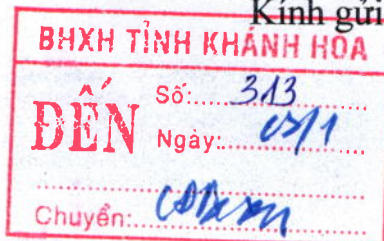 Kính gửi
BHXH TỈNH KHÁNH HÒA
ĐẾN
Số:.....313.....
Ngày:.....03/1.....
Chuyển: